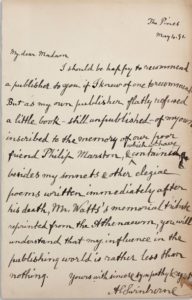 The Pines
May 4. 92
My dear Madam
I should be happy to recommend
a publisher to you if I knew of one to recommend.
But as my own publisher flatly refused
a little book - still unpublished - of my own
inscribed to the memory of our poor
friend Philip Marston, & containing
besides my sonnets & other elegiac
poems written immediately after
his death, Mr. Watts's memorial tribute
reprinted from the Athenaeum, you will
understand that my influence in the
publishing world is rather less than
nothing.
Yours with sincere sympathy &
A C Swinburne